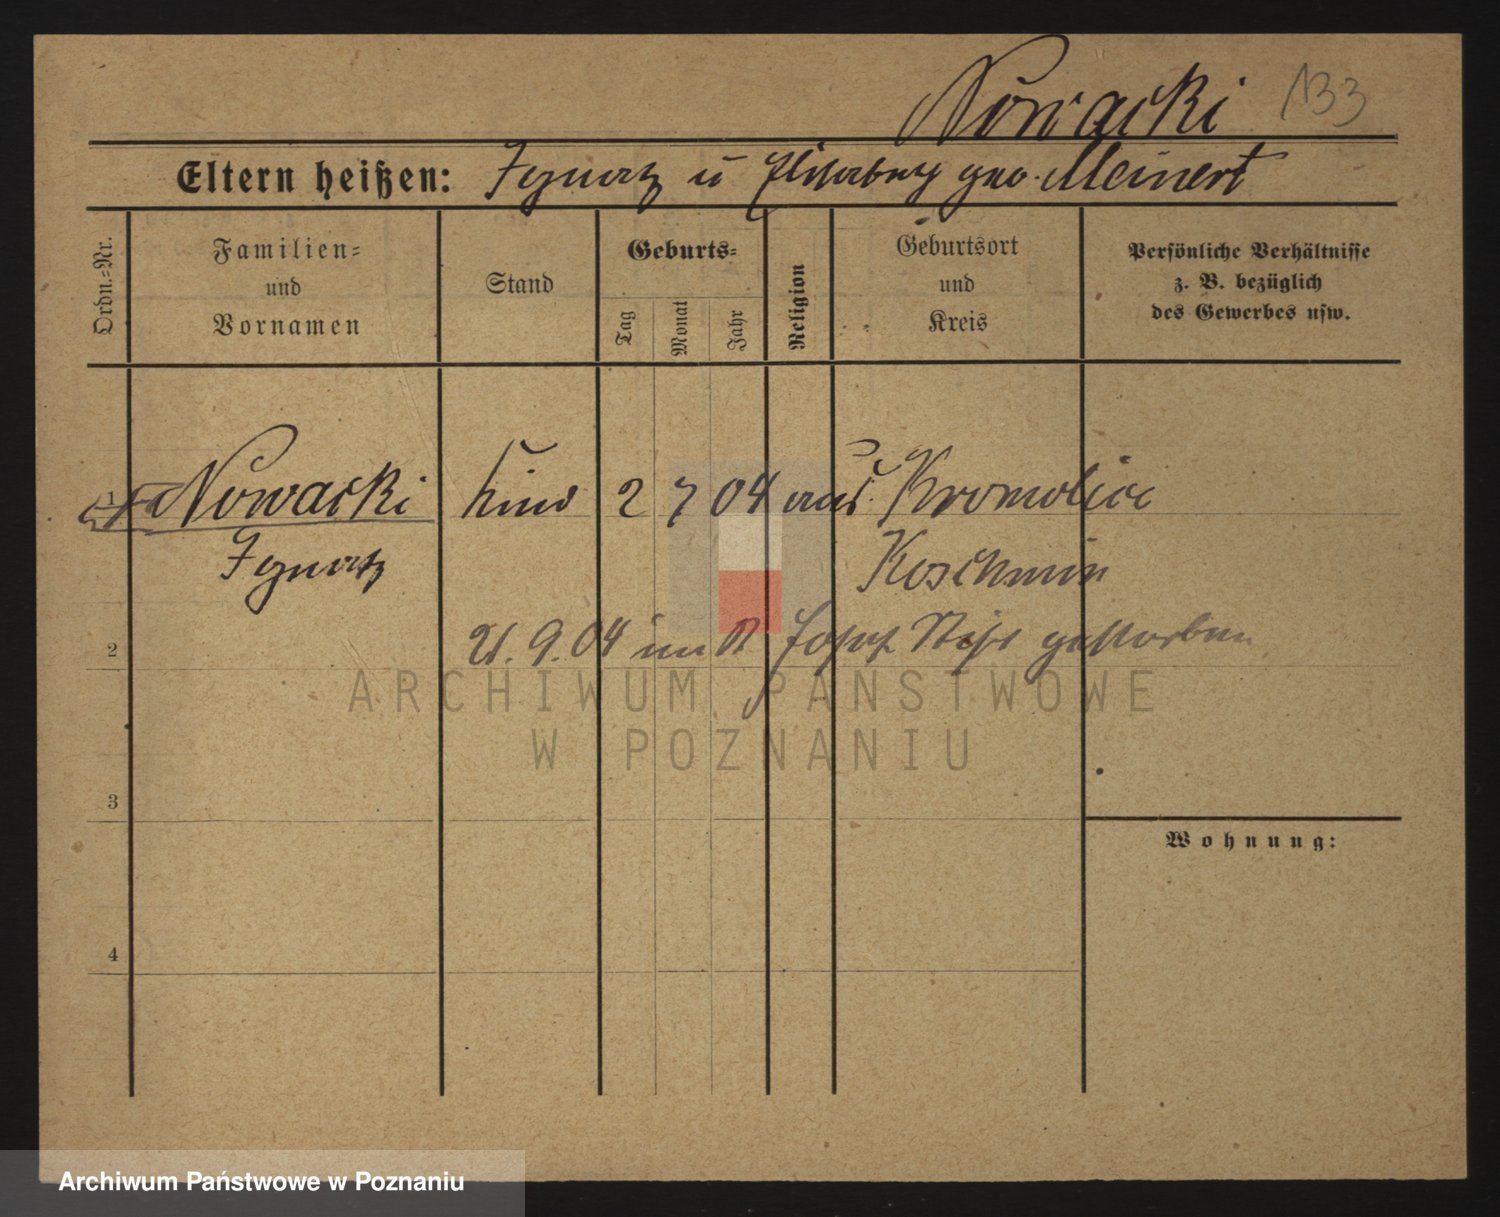 Nowacki 133
Eltern heißen: Ignatz u Elisabeth geb. Meinert
Ordn.=Nr.
Familien=
und
Vornamen
Stand
Geburts=
Tag
Monat
Jahr
Religion
Geburtsort
und
Kreis
Persönliche Verhältnisse
z. B. bezüglich
des Gewerbes usw.
1 Nowacki Kind 2 7 04 Kromolice
Ignatz Koschmin
2 21. 9. 04 im Josef Stift gestorben
ARCHIWUM PAŃSTWOWE
W POZNANIU
3
Wohnung:
4
Archiwum Państwowe w Poznaniu